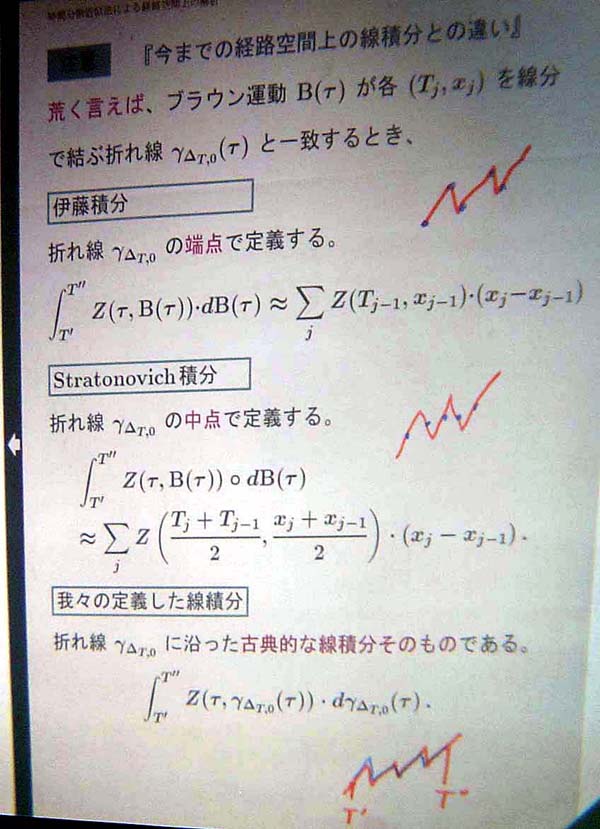 時間分割近似法による経路空間上の解析
注意 『今までの経路空間上の線積分との違い』
荒く言えば、ブラウン運動 B(τ) が各 (T_j, x_j) を線分
で結ぶ折れ線 γ_{Δ_{T,0}}(τ) と一致するとき、
伊藤積分
折れ線 γ_{Δ_{T,0}} の端点で定義する。
∫_{T'}^{T''} Z(τ, B(τ))·dB(τ) ≈ ∑_j Z(T_{j−1}, x_{j−1})·(x_j−x_{j−1})
Stratonovich積分
折れ線 γ_{Δ_{T,0}} の中点で定義する。
∫_{T'}^{T''} Z(τ, B(τ)) ∘ dB(τ)
≈ ∑_j Z ( (T_j + T_{j−1})/2 , (x_j + x_{j−1})/2 ) · (x_j − x_{j−1}) .
我々の定義した線積分
折れ線 γ_{Δ_{T,0}} に沿った古典的な線積分そのものである。
∫_{T'}^{T''} Z(τ, γ_{Δ_{T,0}}(τ)) · dγ_{Δ_{T,0}}(τ) .
T' T''